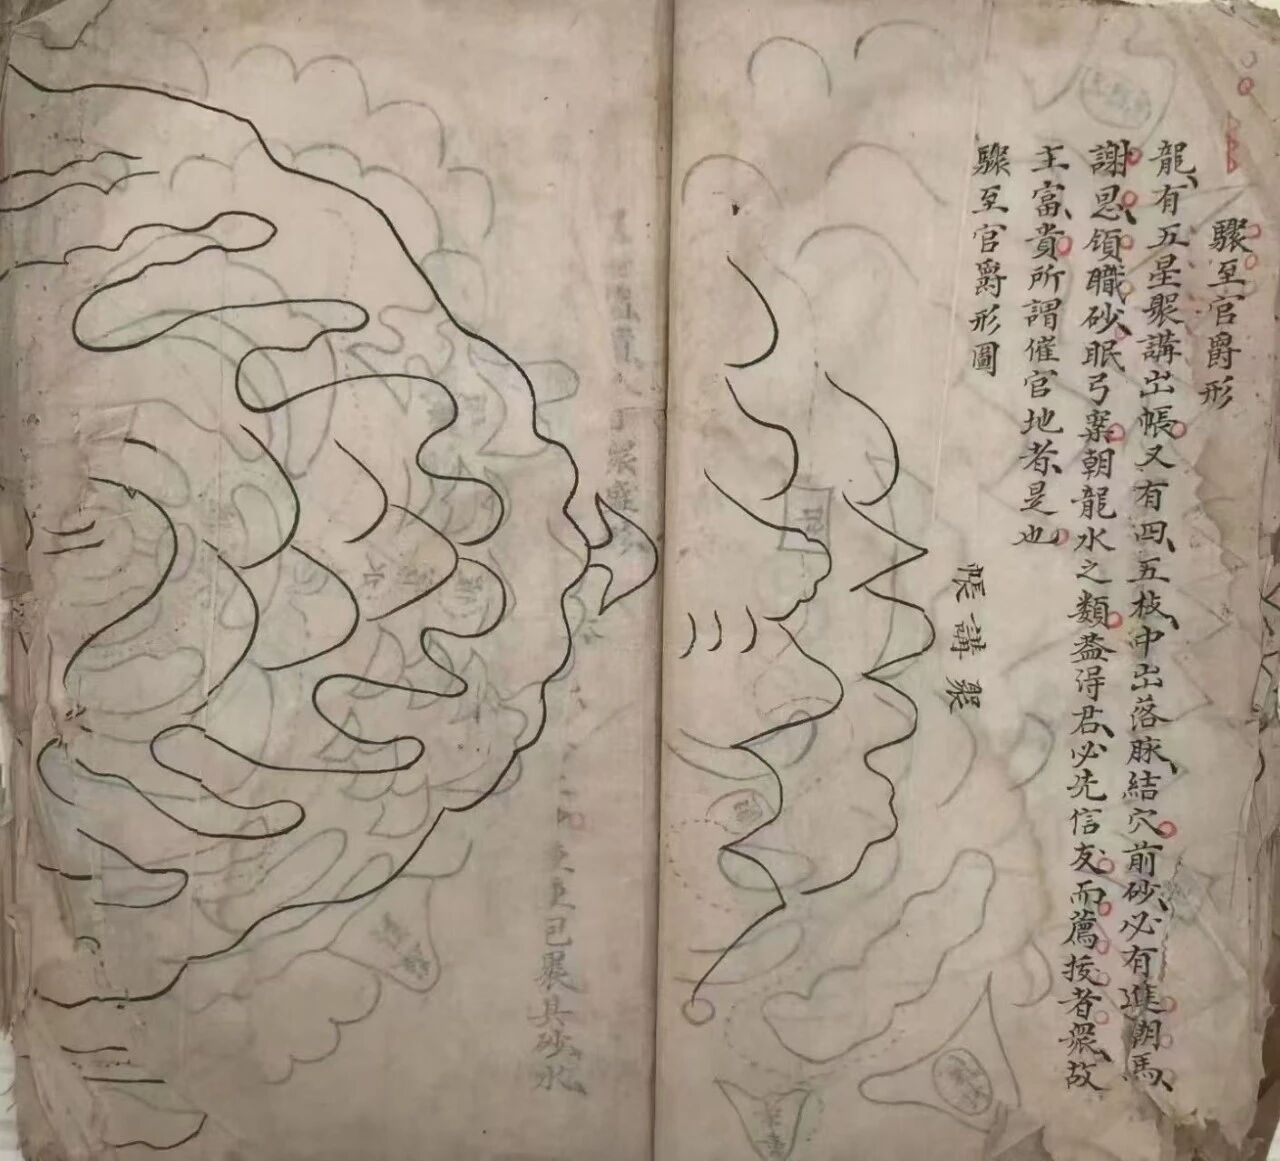 驟至官爵形
龍有五星聚講出帳又有四五枝中出落脉結穴前砂必有進朝馬
謝恩領職砂眠弓案朝龍水之類葢得君必先信友而薦援者衆故
主富貴所謂催官地者是也
驟至官爵形圖
聚講帳